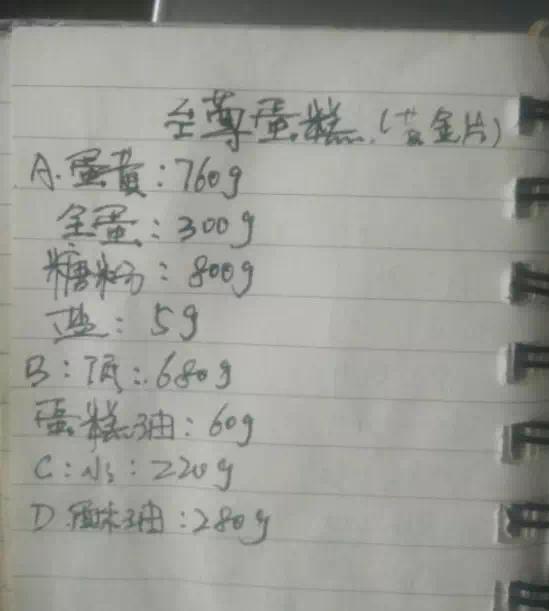 至尊蛋糕.(黄金片)
A.蛋黄:760g
全蛋:300g
糖粉:800g
盐:5g
B:低:680g
蛋糕油:60g
C:水:220g
D.酥油:280g